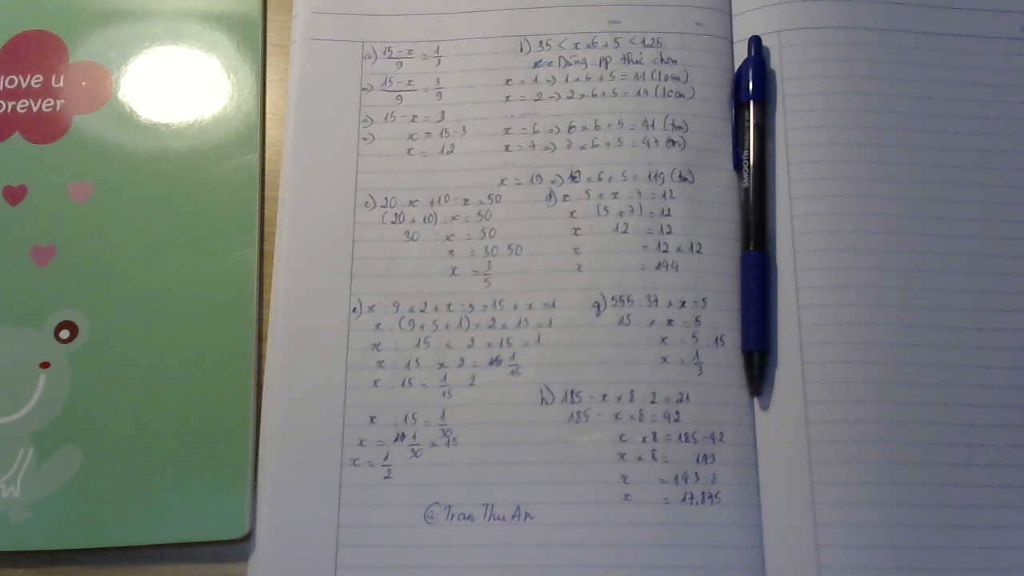 love u
orever
a) 15-x/9 = 1/3
=) 15-x/9 = 3/9
=) 15-x = 3
=) x = 15-3
x = 12
b) 35 < x × 6 + 5 < 125
Dùng pp thử chọn
x = 1 => 1 × 6 + 5 = 11 (loại)
x = 2 => 2 × 6 + 5 = 17 (loại)
x = 6 => 6 × 6 + 5 = 41 (tm)
x = 7 => 7 × 6 + 5 = 47 (tm)
x = 19 => × 6 + 5 = 119 (tm)
c) 20 : x + 10 : x = 50
(20 + 10) : x = 50
30 : x = 50
x = 30 : 50
x = 3/5
d) x : 5 + x : 7 = 12
x : (5 + 7) = 12
x : 12 = 12
x = 12 × 12
x = 144
e) x : 9 × 2 + x : 5 × 15 + x = 1
x : (9 + 5 + 1) × 2 × 15 = 1
x : 15 × 2 × 15 = 1
x : 15 × 2 = 1/15
x : 15 = 1/15 : 2
x : 15 = 1/30
x = 1/30 × 15
x = 1/2
g) 555 : 37 × x = 5
15 × x = 5
x = 5 : 15
x = 1/3
h) 185 - x × 8 : 2 = 21
185 - x × 8 = 42
x × 8 = 185 - 42
x × 8 = 143
x = 143 : 8
x = 17,875
@Tran Thu An
SMOOTH